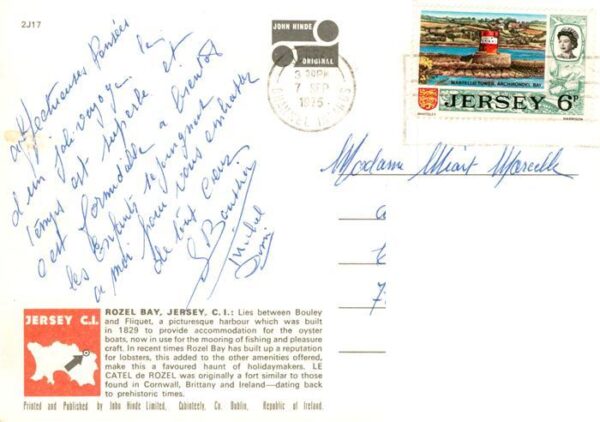 2J17
JOHN HINDE
ORIGINAL
3 30PM
7 SEP
1975
CHANNEL ISLANDS
MARTELLO TOWER, ARCHIRONDEL BAY
JERSEY 6P
HARRISON
affectueuses Pensées
d'un joli voyage. Le
temps est superbe et
c'est formidable à bientôt
les Enfants se joignent
à moi pour vous embrasser
de tout cœur
Michel
Madame Marcelle
JERSEY C.I.
ROZEL BAY, JERSEY, C.I.: Lies between Bouley
and Fliquet, a picturesque harbour which was built
in 1829 to provide accommodation for the oyster
boats, now in use for the mooring of fishing and pleasure
craft. In recent times Rozel Bay has built up a reputation
for lobsters, this added to the other amenities offered,
make this a favoured haunt of holidaymakers. LE
CATEL de ROZEL was originally a fort similar to those
found in Cornwall, Brittany and Ireland—dating back
to prehistoric times.
Printed and Published by John Hinde Limited, Cabinteely, Co. Dublin, Republic of Ireland.